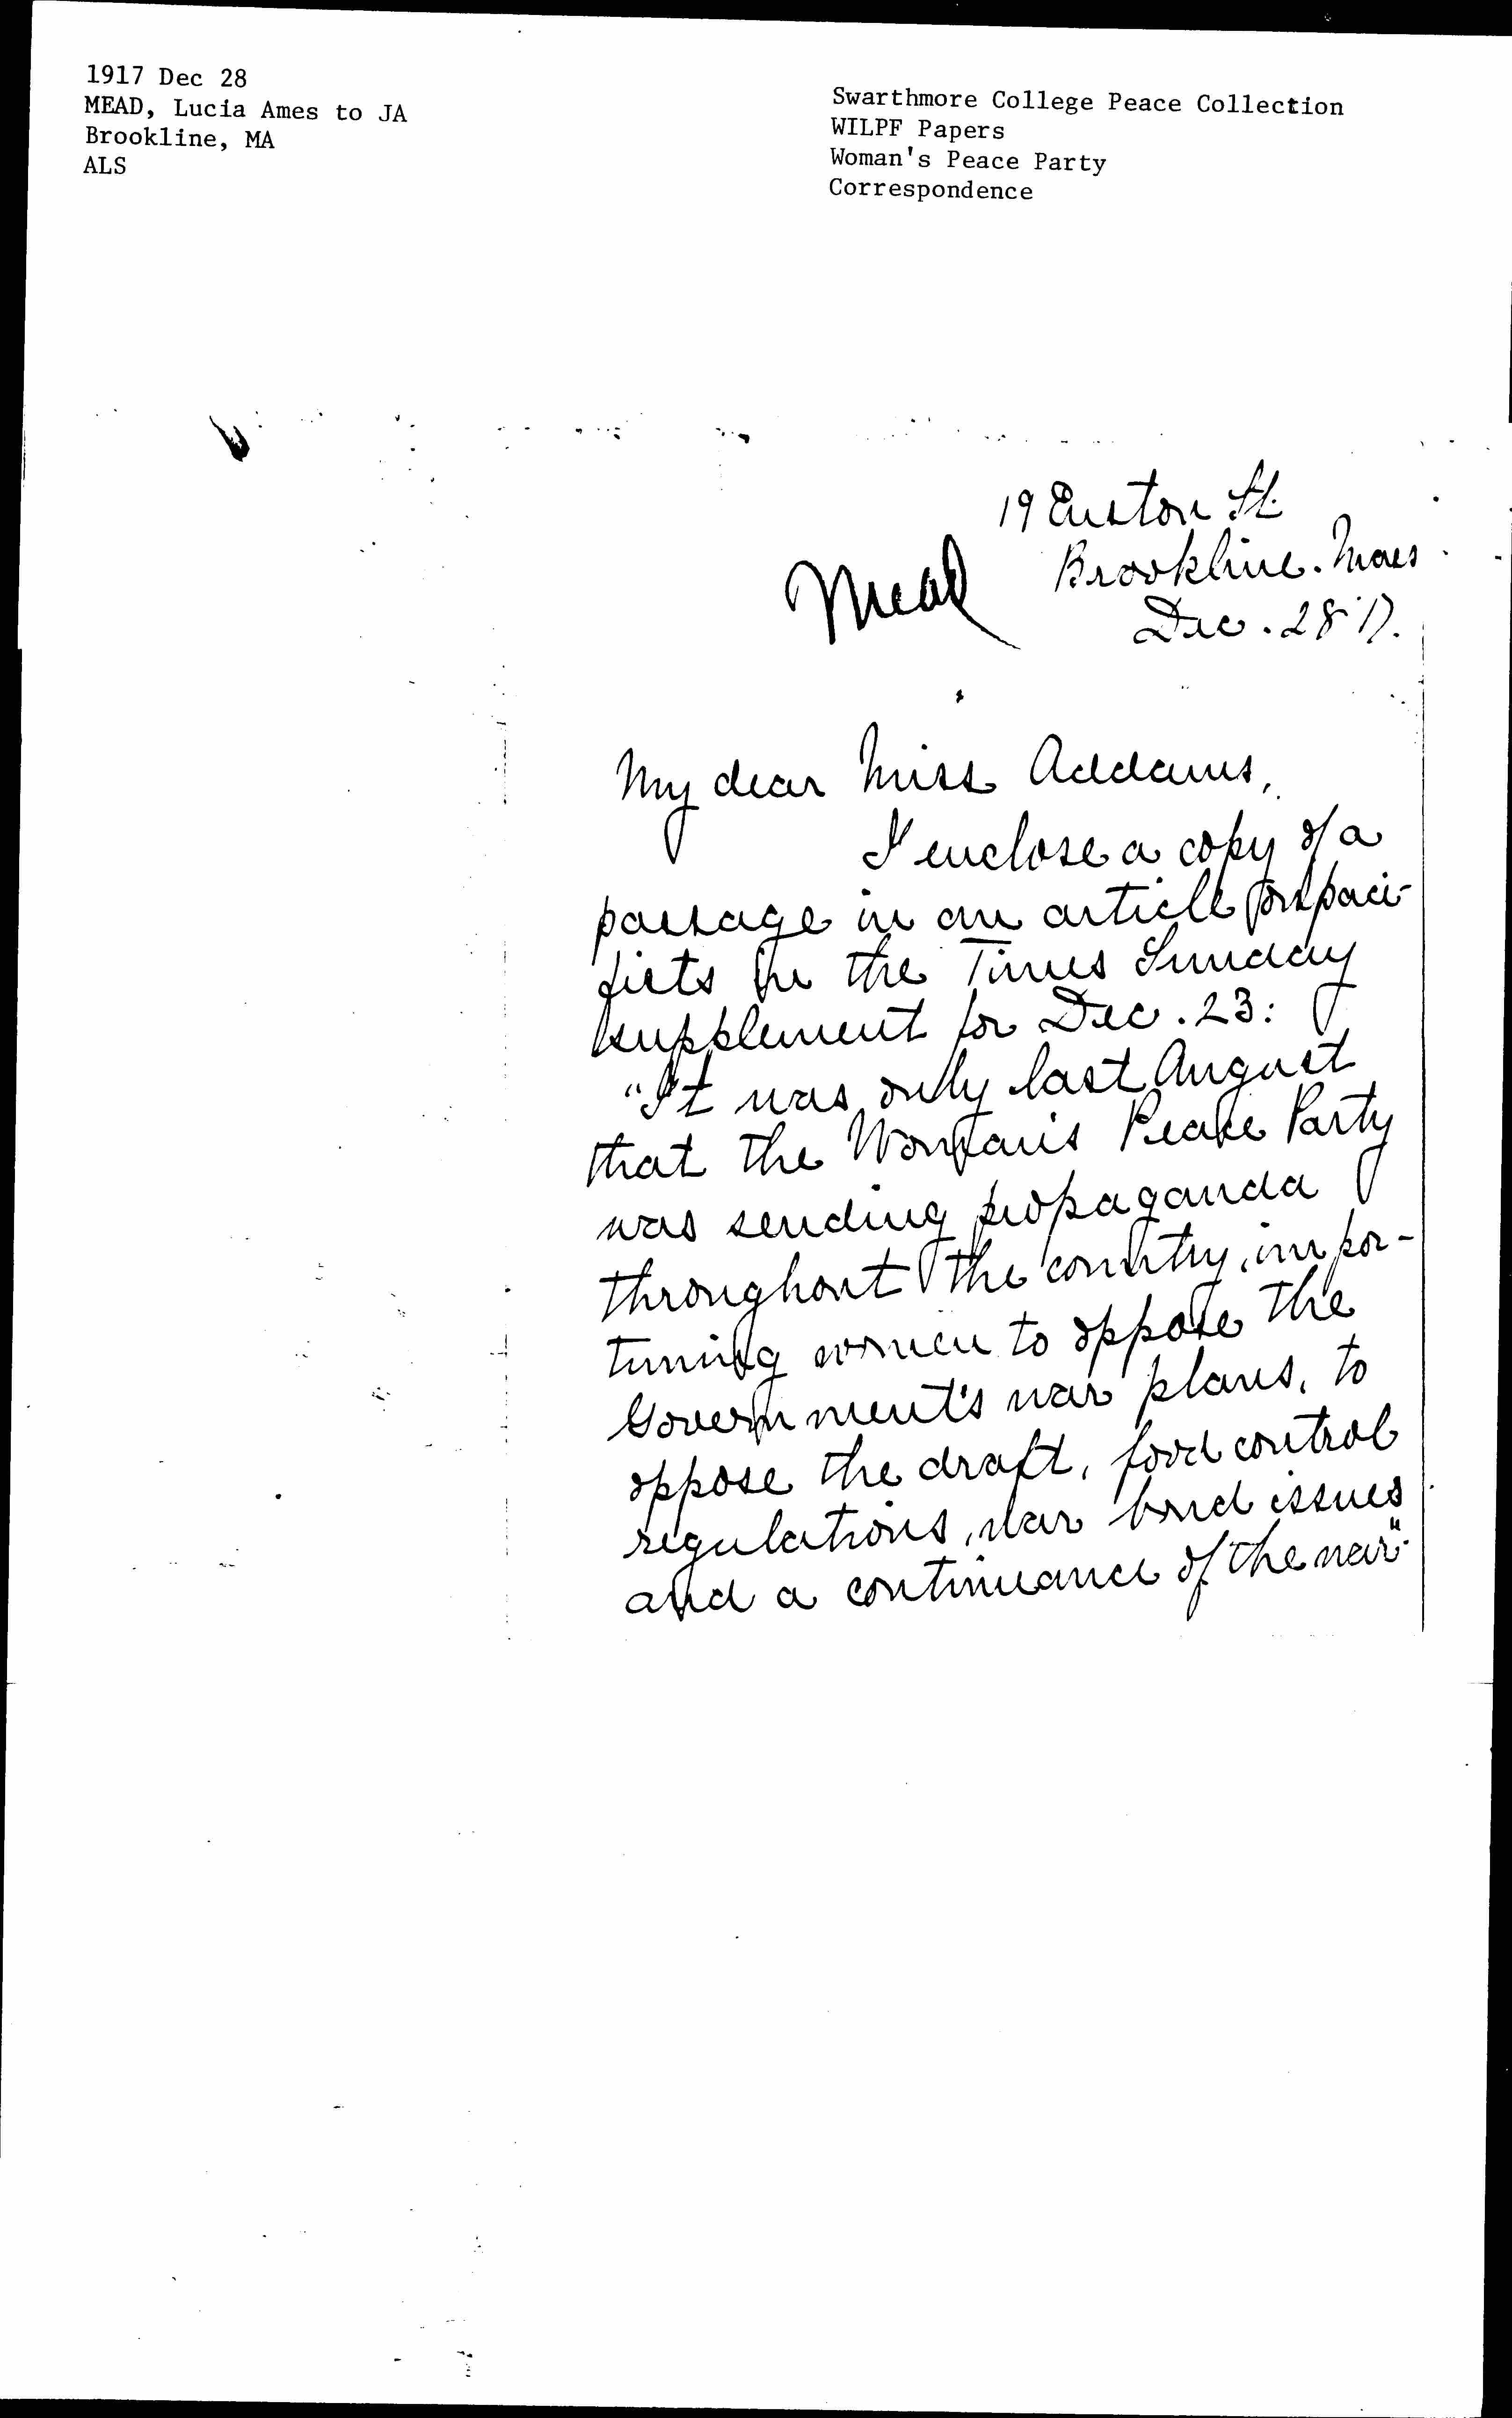 1917 Dec 28
MEAD, Lucia Ames to JA
Brookline, MA
ALS
Swarthmore College Peace Collection
WILPF Papers
Woman's Peace Party
Correspondence
19 Euston St.
Brookline. Mass
Mead
Dec. 28 '17.
My dear Miss Addams,
I enclose a copy of a
passage in an article on paci-
fists in the Times Sunday
supplement for Dec. 23:
"It was only last August
that the Woman's Peace Party
was sending propaganda
throughout the country, impor-
tuning women to oppose the
Government's war plans, to
oppose the draft, food control
regulations, war bond issues
and a continuance of the war."